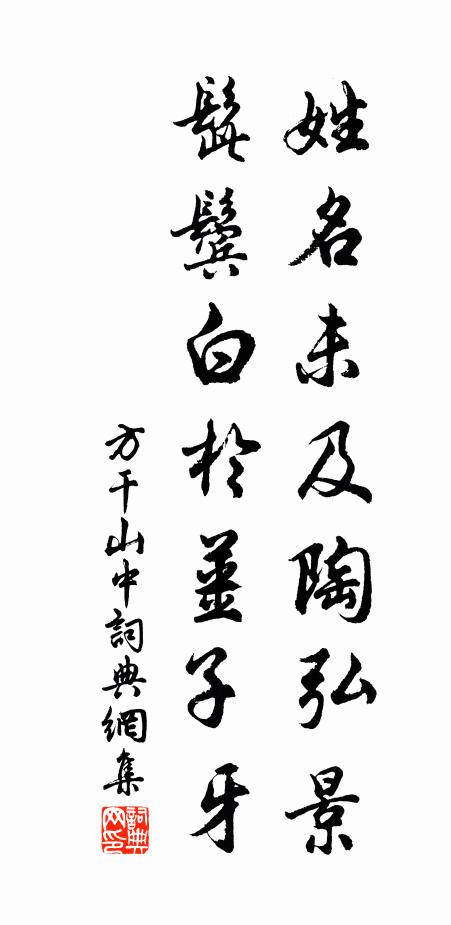 姓名未及陶弘景
髭鬢白於薑子牙
方干山中詞典網集
詞典网印